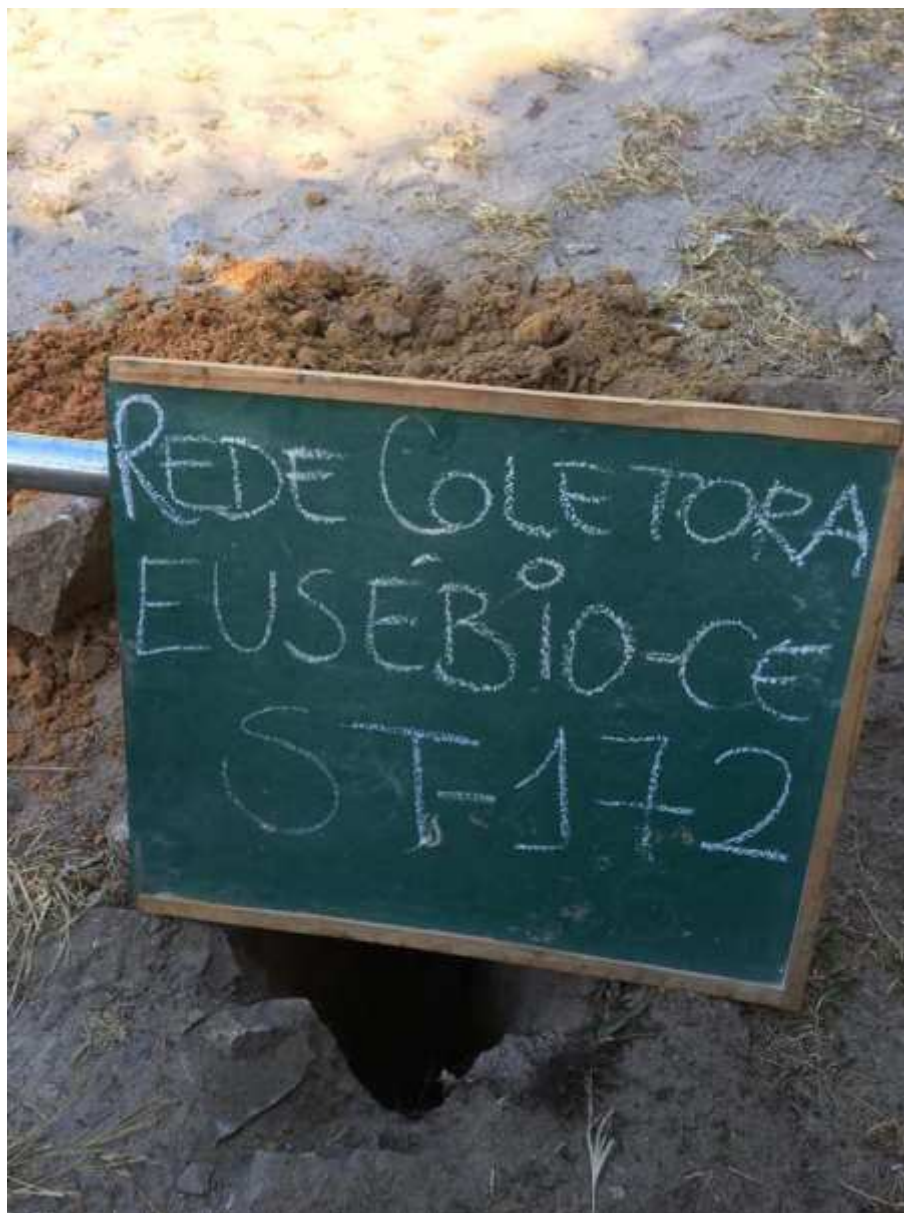 REDE COLETORA
EUSÉBIO-CE
ST-172